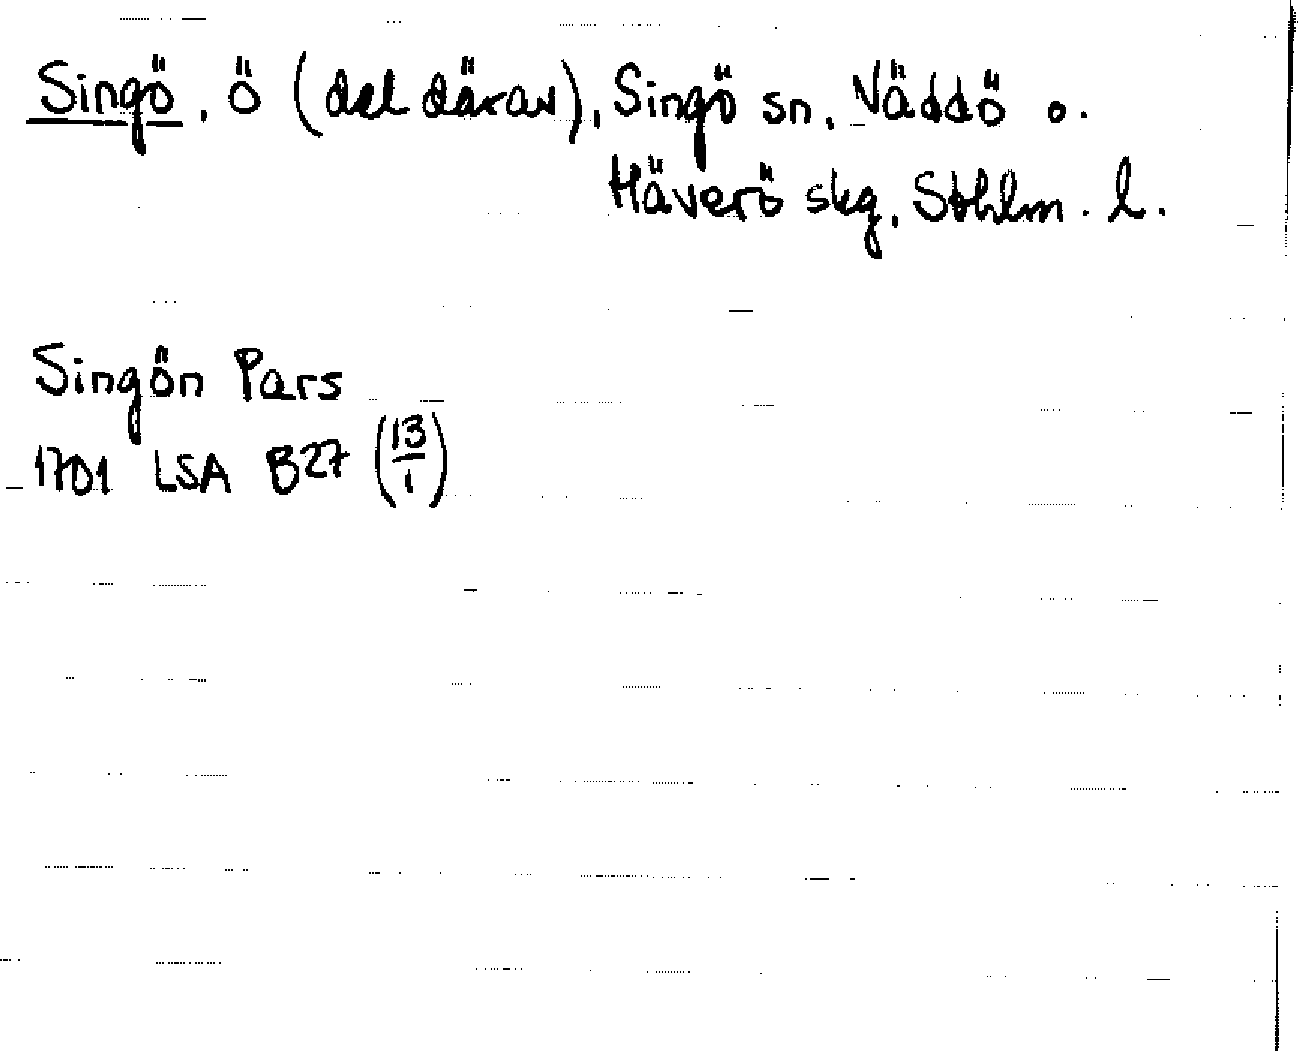 Singö, ö (del därav), Singö sn, Väddö o.
Häverö skg, Sthlm. l.
Singön Pars
1701 LSA B27 (13/1)